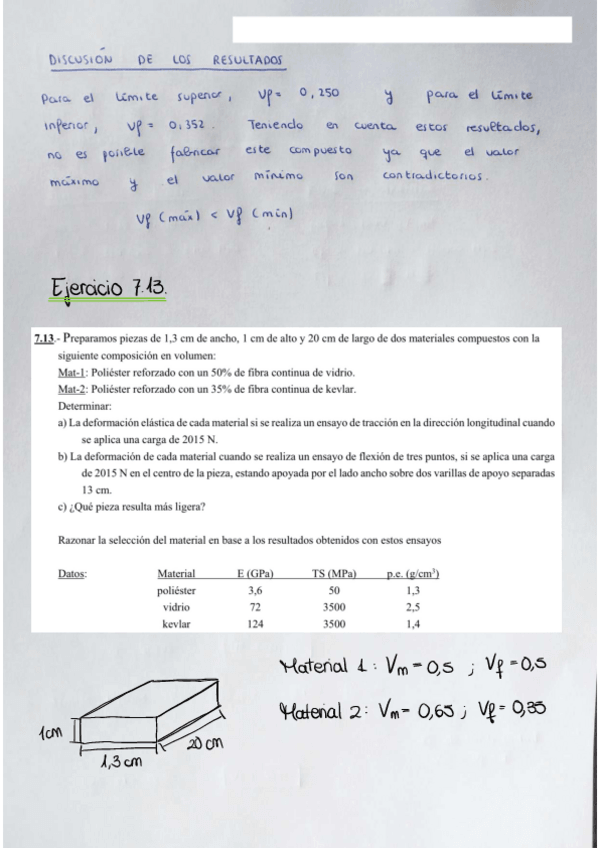 DISCUSIÓN DE LOS RESULTADOS
Para el límite superior, Vf = 0,250 y para el límite
inferior, Vf = 0,352. Teniendo en cuenta estos resultados,
no es posible fabricar este compuesto ya que el valor
máximo y el valor mínimo son contradictorios.
Vf (máx) < Vf (mín)
Ejercicio 7.13.
7.13.- Preparamos piezas de 1,3 cm de ancho, 1 cm de alto y 20 cm de largo de dos materiales compuestos con la
siguiente composición en volumen:
Mat-1: Poliéster reforzado con un 50% de fibra continua de vidrio.
Mat-2: Poliéster reforzado con un 35% de fibra continua de kevlar.
Determinar:
a) La deformación elástica de cada material si se realiza un ensayo de tracción en la dirección longitudinal cuando
se aplica una carga de 2015 N.
b) La deformación de cada material cuando se realiza un ensayo de flexión de tres puntos, si se aplica una carga
de 2015 N en el centro de la pieza, estando apoyada por el lado ancho sobre dos varillas de apoyo separadas
13 cm.
c) ¿Qué pieza resulta más ligera?
Razonar la selección del material en base a los resultados obtenidos con estos ensayos
Datos: Material E (GPa) TS (MPa) p.e. (g/cm³)
poliéster 3,6 50 1,3
vidrio 72 3500 2,5
kevlar 124 3500 1,4
Material 1 : Vm = 0,5 ; Vf = 0,5
Material 2: Vm = 0,65 ; Vf = 0,35
1cm
20 cm
1,3 cm